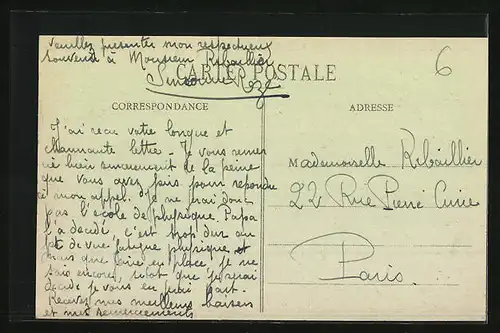 Veuillez presenter mon respectueux
souvenir à Monsieur Ribaillier
Simonne
CARTE POSTALE
6
CORRESPONDANCE
ADRESSE
J'ai reçu votre longue et
charmante lettre. Je vous remer
cie bien sincerement de la peine
que vous avez pris pour repondre
à mon appel. Je ne irai donc
pas l'école de physique. Papa
l'a decidé, c'est trop dur au
pt de vue fatigue physique et
mais que faire en place, je ne
sais encore, sitot que je serai
decidé je vous en ferai part.
Recevez mes meilleurs baisers
et mes remerciements
Mademoiselle Ribaillier
22 Rue Pierre Curie
Paris